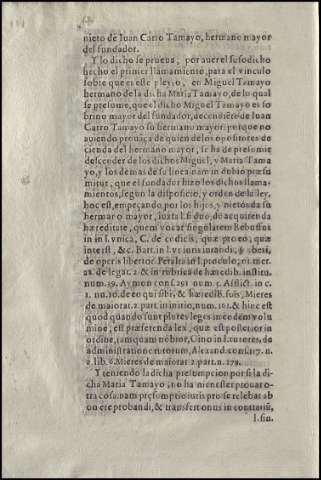 nieto de Iuan Carro Tamayo, hermano mayor
del fundador.
Y lo dicho se prueua, por auer el susodicho
hecho el primer llamamiento, para el vinculo
sobre que es este pleyto, en Miguel Tamayo
hermano de la dicha Maria Tamayo, de lo qual
se presume, que el dicho Miguel Tamayo es so
brino mayor del fundador, decendiẽte de Iuan
Carro Tamayo su hermano mayor: porque no
auiendo prouãça de quien de los opositores de
cienda del hermano mayor, se ha de presumir
descẽder de los dichos Miguel, y Maria Tama
yo, y los demas de su linea nam in dubio præsu
mitur, que el fundador hizo los dichos llama-
mientos, segun la disposiciõ, y orden de la ley,
hoc est, empeçando por los hijos, y nietos de su
hermano mayor, iuxta l. si duo, de acquirenda
hæreditate, quem vocat singularem Rebuffus
in l. vnica, C. de
interest, & c. Bart. in l.
de operis libertor. Peralta in l.
as. de legat. 2. & in rubrica de hæredib. institu.
num. 29. Aymon conf. 291 num 5. Afflict. in c.
1. nu. 10. de eo qui sibi, & hæredib. suis, Mieres
de maiorat. 2. part. initatio, num. 101. & hic est
quod quando sunt plures leges in eodem volu
mine, est præferenda lex, quæ est posterior in
ordine, tamquam nobior, Cino in l. tutores, de
administratione tutorum, Alexand. cons. 117. n.
2. lib. 6. Mieres de maiorat. 2 part. n. 178.
Y teniendo la dicha presumpcion por si la di
cha Maria Tamayo, no ha menester prouar o-
tra cosa. nam præsumptio iuris pro se relebat ab
onere probandi, & transfert onus in contrariũ,
l. sin.